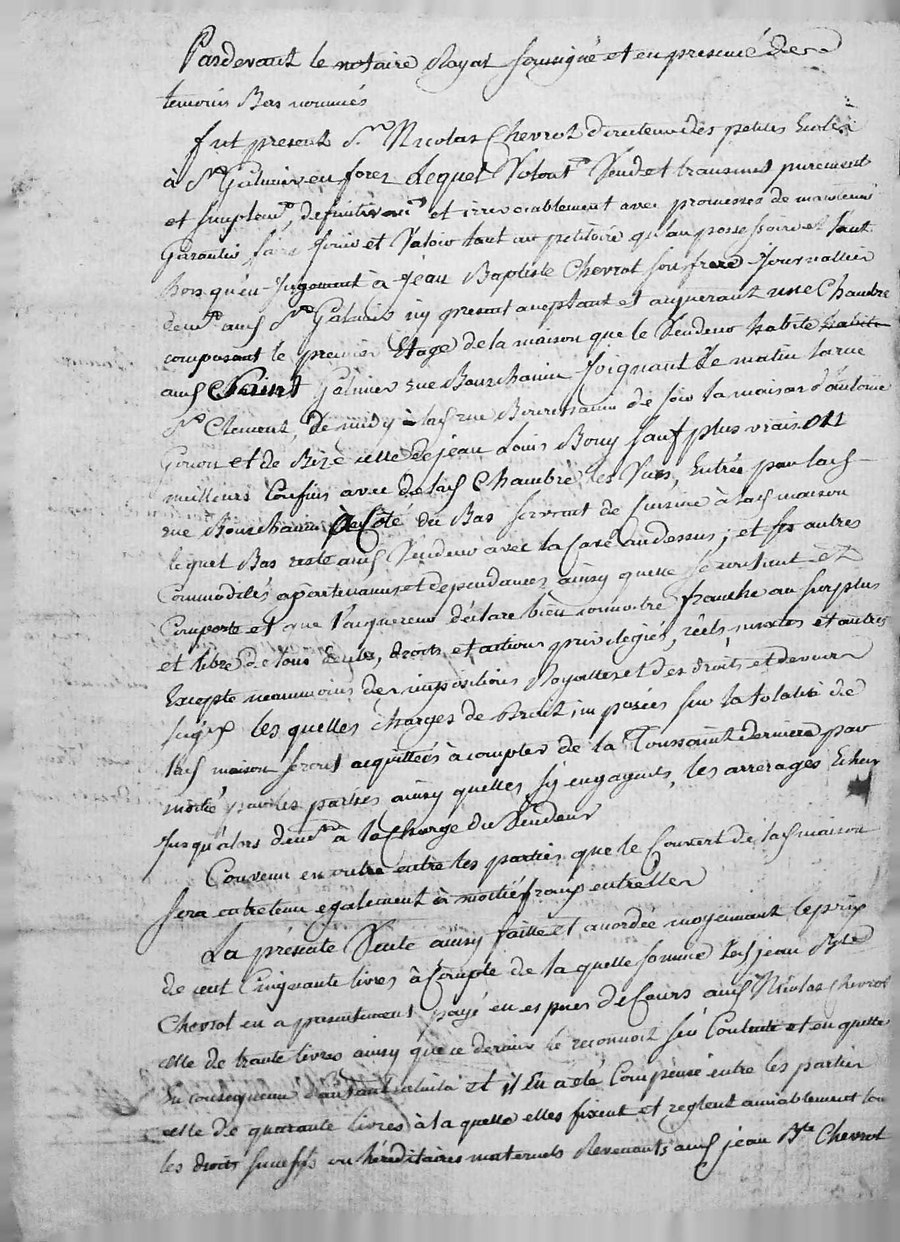 Pardevant le notaire Royal soussigné et en presence des
temoins Bas nommés
fut present Sr. Nicolas Chevrot directeur des petites Ecoles
à St. Galmier en forez Lequel Volont.t Vend et transmet purement
et simplem.t, definitivem.t et irrevocablement avec promesses de maintenir
Garantir faire Jouir et Valoir tant au petitoire qu'au possessoire et tant
hors qu'en Jugement à Jean Baptiste Chevrot son frere Journallier
dem.t aud St. Galmier icy present acceptant et acquerant une Chambre
composant le premier Etage de la maison que le Vendeur habite habite
aud Saint Galmier rue Bourchanin Joignant de matin la rue
St. Clement, de midy à lad rue Bourchanin de soir la maison d'antoine
et de Bize celle de jean Louis Bouy sauf plus vrais ou
meilleurs Confins avec de lad Chambre les Vues, Entrée par lad
rue Bourchanin à Coté du Bas servant de Cuisine à lad maison
lequel Bas reste aud Vendeur avec la Cave au dessus; et ses autres
Commodités apartenances et dependances ainsy quelle se contient et
Comporte et que l'acquereur déclare bien connoitre franche au surplus
et libre de tous droits et actions privilegiés, réels mixtes et autres
Excepté neanmoins des impositions Royalles et des droits et devoirs
les quelles charges de Bruit imposées sur la totalité de
lad maison seront acquittées à compter de la Toussaint derniere par
moitié par les parties ainsy quelles s'y engagent, les arrerages Echeus
Jusqu'alors dem.t à la Charge du Vendeur
Convenu en outre entre les parties que le Couvert de lad maison
sera entretenu egalement à moitié fraix entr'elles
La présente Vente ainsy faitte et accordée moyennant le prix
de cent Cinquante livres à Compte de la quelle somme led jean Bte
Chevrot en a presentement payé en especes de Cours aud Nicolas Chevrot
celle de trante livres ainsy que ce dernier le reconnoit s'en Contente et en quitte
En consequence et il En a eté Compensé entre les parties
celle de quarante livres à la quelle elles fixent et reglent amiablement tous
les droits successifs ou héréditaires maternels Revenants aud jean Bte Chevrot